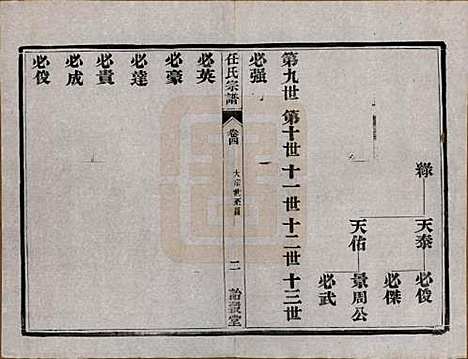 綠 天泰 必俊
必傑
天佑 景周公
必武
第九世 第十世 十一世 十二世 十三世
必强
任氏宗譜 卷四 大宗世系圖 二
必英
必豪
必達
必貴
必成
必俊